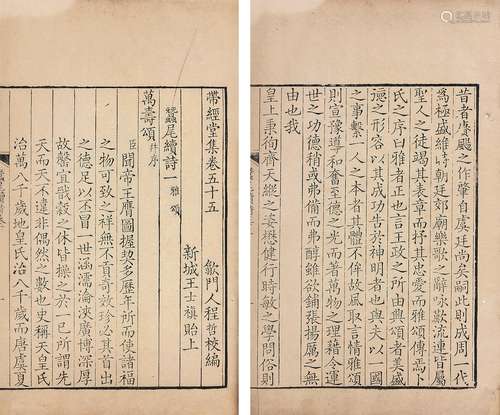 昔者賡颺之作肇自虞廷尚矣嗣此則成周一代
爲極盛維時朝廷郊廟樂歌之辭咏歎流連皆屬
聖人之徒竭其表章而抒其忠愛而雅頌傳焉卜
氏之序曰雅者正也言王政之所由興頌者美盛
德之形容以其成功告於神明者也夫以一國
之事繫一人之本者其體不侔故風取言情雅頌
則宣豫導和奮至德之光而著萬物之理藉令運
世之功德稍或弗備而弗醇雖欲鋪張揚厲之無
由也我
皇上秉徇齊天縱之姿懋健行時敏之學問俗則
帶經堂集卷五十五
歙門人程哲校編
新城王士禛貽上
蠶尾續詩一 雅 頌
萬壽頌 幷序
臣聞帝王膺圖握契多歷年所而使諸福
之物可致之祥無不貢奇效珍必其首出
之德足以丕冒一世涵濡淪浹廣博深厚
故罄宜戩穀之休皆操之於一已所謂先
天而天不違非偶然之數也史稱天皇氏
治萬八千歲地皇氏治八千歲而唐虞夏